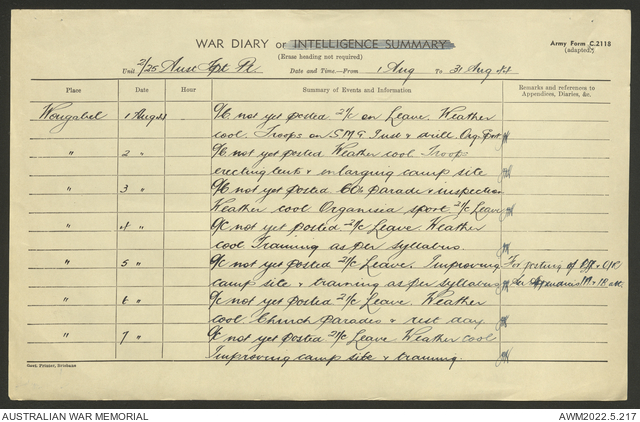 WAR DIARY or INTELLIGENCE SUMMARY
(Erase heading not required)
Army Form C.2118
(adapted)
Unit 2/25 Aust Tpt Pl. Date and Time—From 1 Aug To 31 Aug
Place Date Hour Summary of Events and Information Remarks and references to Appendices, Diaries, &c.
Wongabel 1 Aug O/C not yet posted 2I/c on Leave. Weather
cool. Troops on S.M.G Inst & drill. Org. Sport
" 2 " O/C not yet posted Weather cool Troop
erecting tents & enlarging camp site
" 3 " O/C not yet posted Coy parade & inspection
Weather cool Organised sport 2I/c Leave
" 4 " O/C not yet posted 2I/c Leave. Weather
cool Training as per Syllabus.
" 5 " O/C not yet posted 2I/c Leave. Improving For posting of Off & O/R
camp site & training as per Syllabus See Appendices
" 6 " O/C not yet posted 2I/c Leave. Weather
cool Church parades & rest day.
" 7 " O/C not yet posted 2I/c Leave Weather cool
Improving camp site & training.
Govt. Printer, Brisbane
AUSTRALIAN WAR MEMORIAL AWM2022.5.217